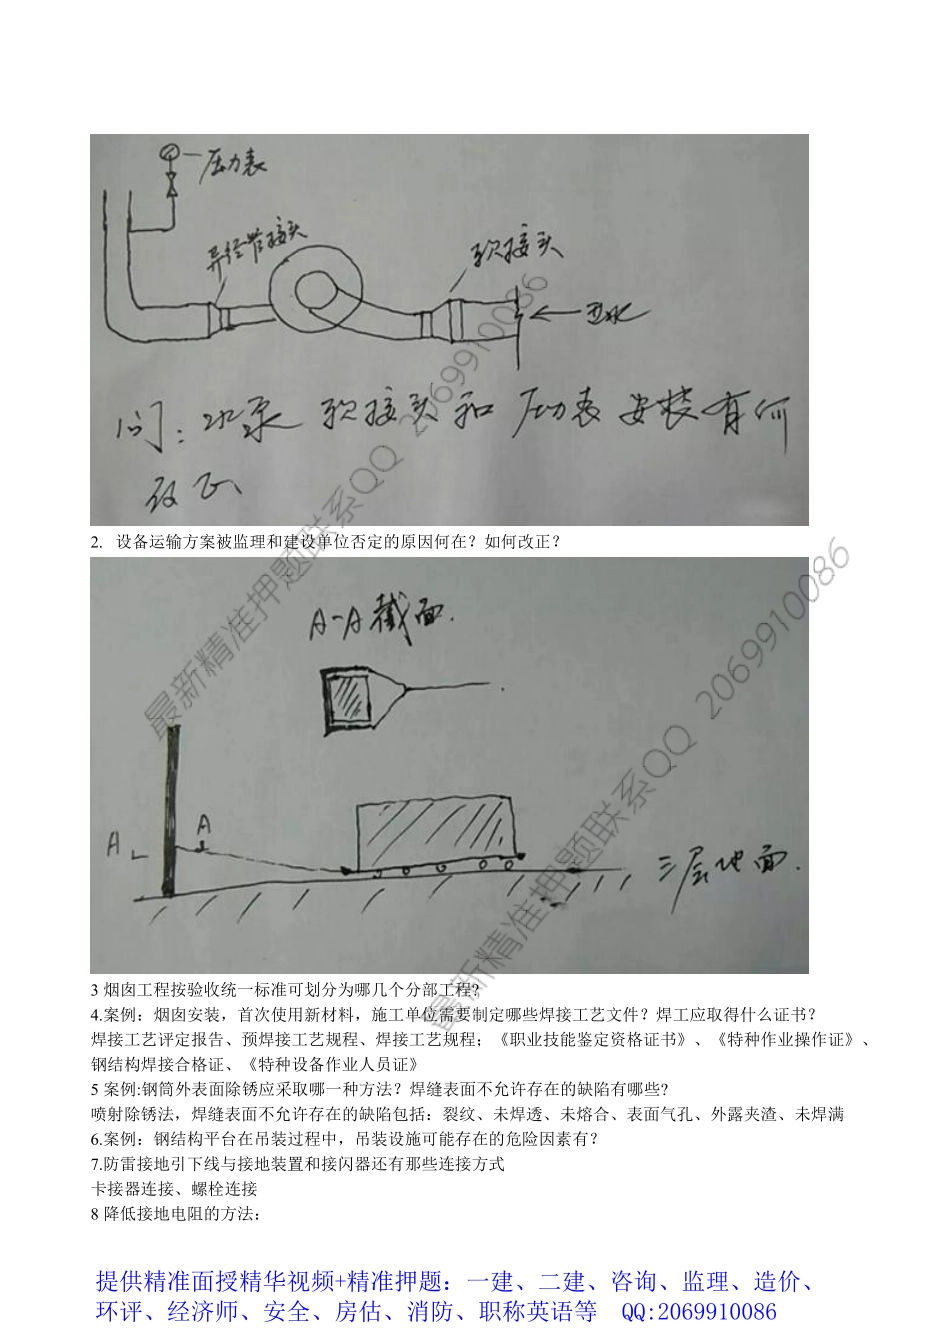 压力表
异径管接头
软接头
进水
问：水泵 软接头 和 压力表 安装有何
改正
2. 设备运输方案被监理和建设单位否定的原因何在？如何改正？
A-A 截面.
A
A
三层地面.
3 烟囱工程按验收统一标准可划分为哪几个分部工程?
4.案例：烟囱安装，首次使用新材料，施工单位需要制定哪些焊接工艺文件？焊工应取得什么证书？
焊接工艺评定报告、预焊接工艺规程、焊接工艺规程；《职业技能鉴定资格证书》、《特种作业操作证》、
钢结构焊接合格证、《特种设备作业人员证》
5 案例:钢筒外表面除锈应采取哪一种方法？焊缝表面不允许存在的缺陷有哪些?
喷射除锈法，焊缝表面不允许存在的缺陷包括：裂纹、未焊透、未熔合、表面气孔、外露夹渣、未焊满
6.案例：钢结构平台在吊装过程中，吊装设施可能存在的危险因素有？
7.防雷接地引下线与接地装置和接闪器还有那些连接方式
卡接器连接、螺栓连接
8 降低接地电阻的方法：
最新精准押题联系QQ 2069910086
最新精准押题联系QQ 2069910086
提供精准面授精华视频+精准押题：一建、二建、咨询、监理、造价、
环评、经济师、安全、房估、消防、职称英语等 QQ:2069910086